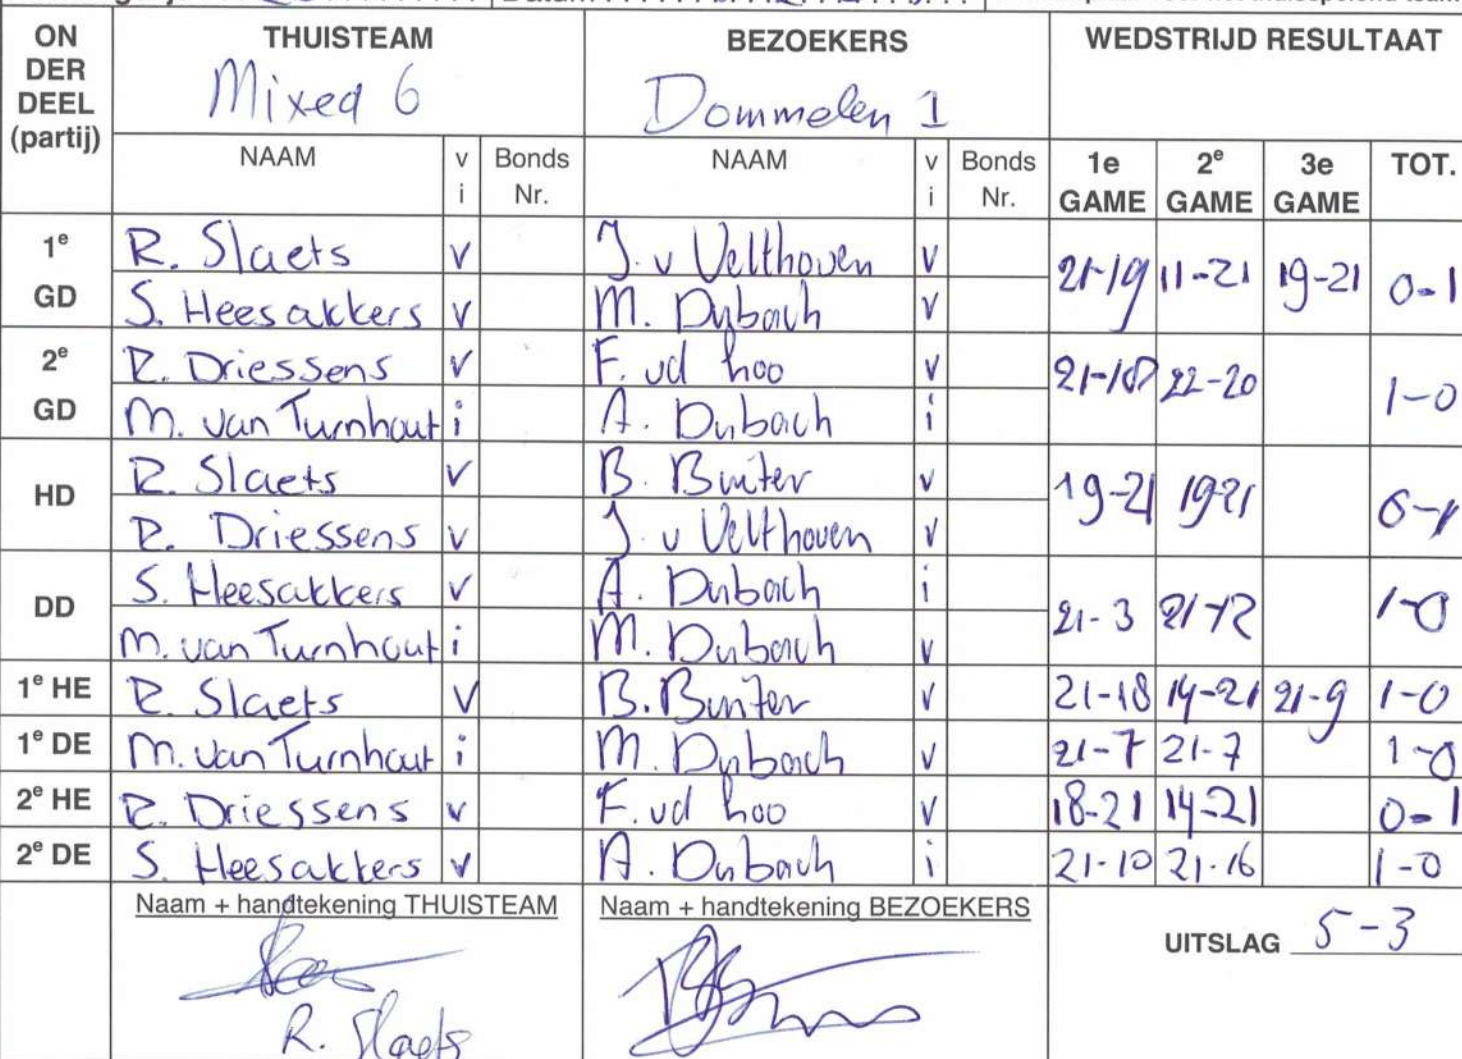 Datum
ON DER DEEL (partij) THUISTEAM BEZOEKERS WEDSTRIJD RESULTAAT
Mixed 6 Dommelen 1
NAAM v i Bonds Nr. NAAM v i Bonds Nr. 1e GAME 2e GAME 3e GAME TOT.
1e GD R. Slaets v J. v Velthoven v 21-19 11-21 19-21 0-1
S. Heesakkers v M. Dubach v
2e GD R. Driessens v F. vd hoo v 21-18 22-20 1-0
M. van Turnhout i A. Dubach i
HD R. Slaets v B. Buiter v 19-21 19-21 0-1
R. Driessens v J. v Velthoven v
DD S. Heesakkers v A. Dubach i 21-3 21-12 1-0
M. van Turnhout i M. Dubach v
1e HE R. Slaets v B. Buiter v 21-18 14-21 21-9 1-0
1e DE M. van Turnhout i M. Dubach v 21-7 21-7 1-0
2e HE R. Driessens v F. vd hoo v 18-21 14-21 0-1
2e DE S. Heesakkers v A. Dubach i 21-10 21-16 1-0
Naam + handtekening THUISTEAM Naam + handtekening BEZOEKERS UITSLAG 5-3
R. Slaets